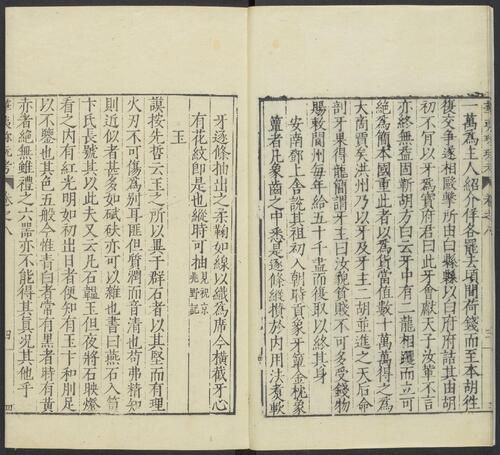 一萬為主人紹介佯各罷去頃間荷錢而至本胡徃
復交爭遂相毆擊所由白縣縣以白府府詰其由胡
初不肎以牙為寳府君曰此牙會獻天子汝輩不言
亦終無益固靳胡方白云牙中有二龍相躨而立可
絶為簡本國重此者以為貨當值數十萬萬得之為
大商賈矣洪州乃以牙及牙主二胡並進之天后命
剖牙果得龍簡謂牙主曰汝貌貧賤不可多受錢物
賜敕閬州每年給五十千盡而復取以終其身
安南鄧上舍說其祖初入朝時貢象牙簟金枕象
簟者凡象齒之中悉是逐條縱攢於内用法煑軟
牙逐條抽出之柔鞠如線以織為席今橫截牙心
有花紋即是也縱時可抽見祝京兆野記
玉
謨按先哲云玉之所以異于群石者以其堅而有理
火刃不可傷為别耳匪但質潤而音清也苟弗精知
則近似者甚多如碔砆亦可以雜也書曰燕石入笥
卞氏長號其以此夫又云凡石韞玉但夜將石映燈
看之内有紅光明如初出日者便知有玉卞和刖足
以不鑒也其色五般今惟青白者常有黑者時有黄
亦者絶無雖禮之六噐亦不能得其真况其他乎
卷之八
四